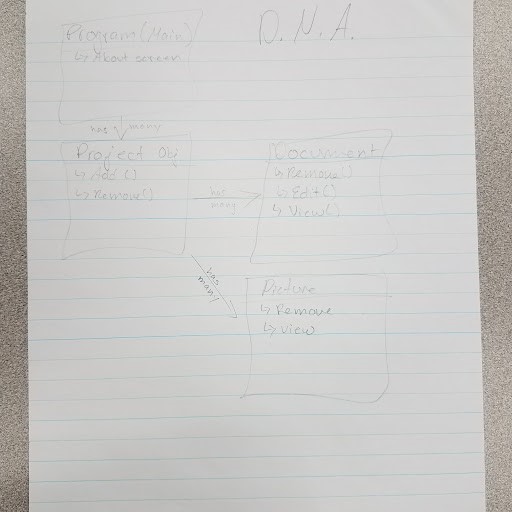 D.N.A.
Program (Main)
↳ About screen
has many
Project Obj
↳ Add ()
↳ Remove()
has many
Document
↳ Remove()
↳ Edit()
↳ View()
has many
Picture
↳ Remove
↳ View